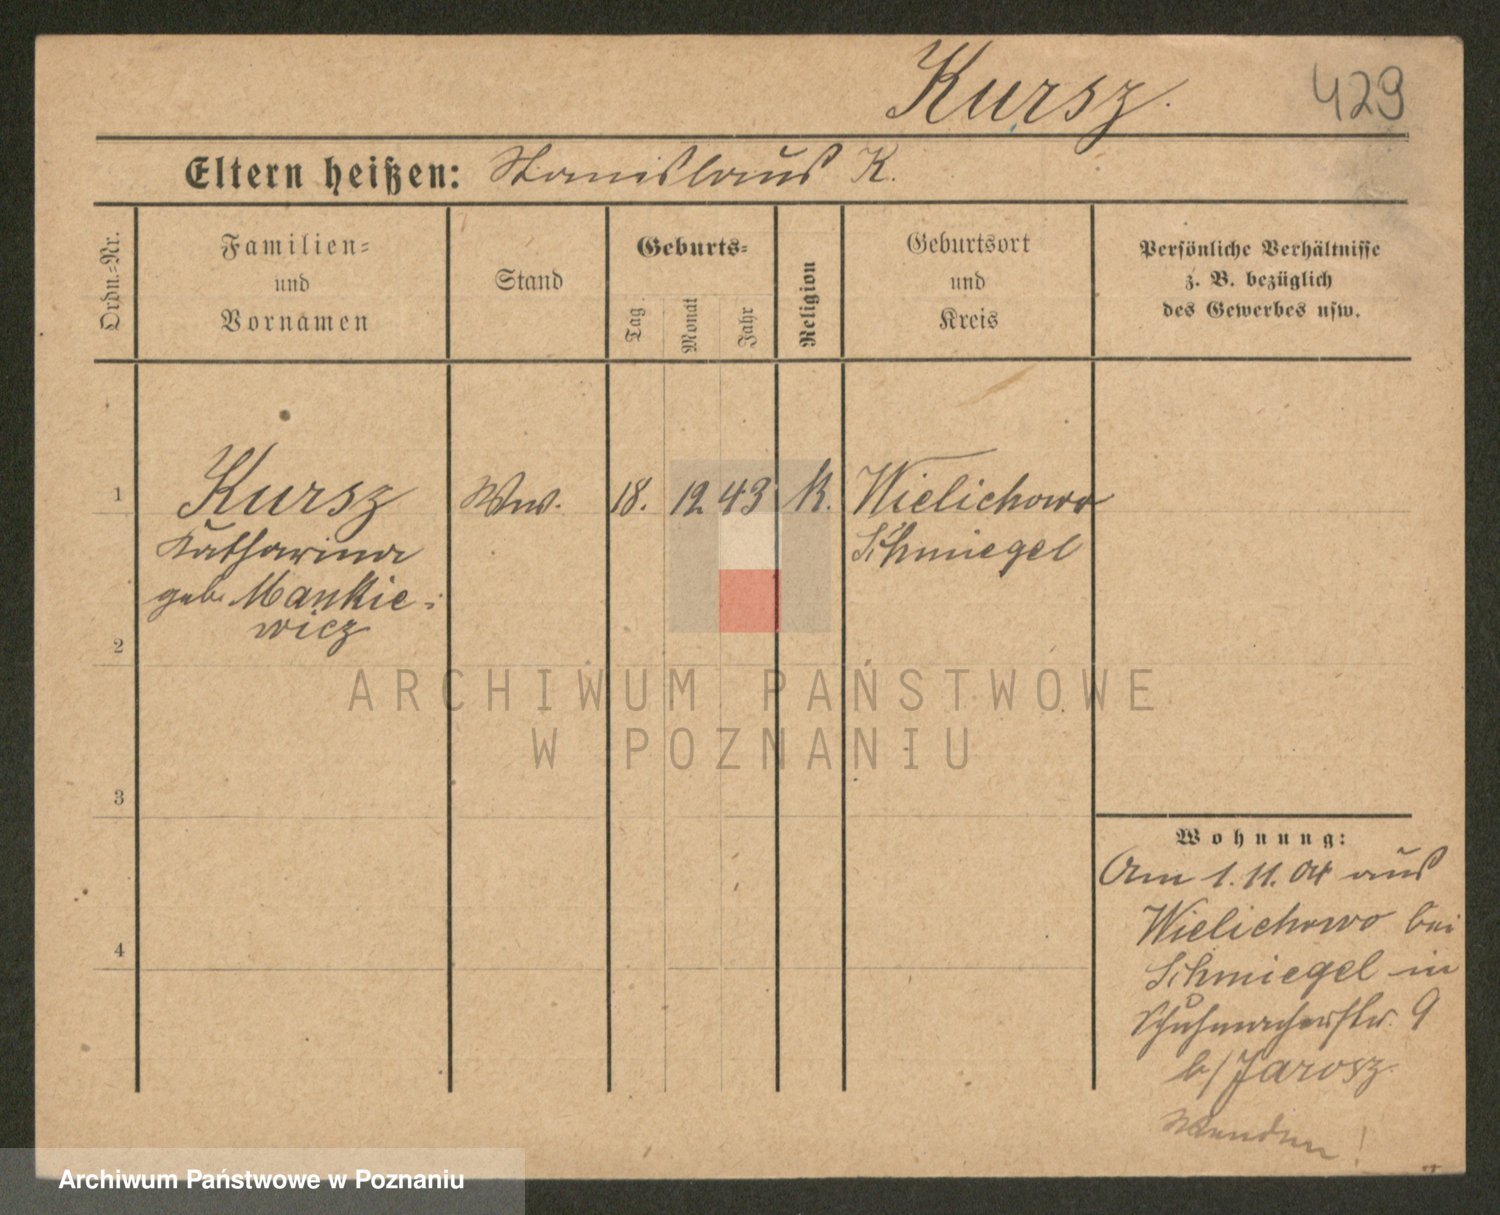 Kursz.
429
Eltern heißen: Stanislaus K.
Ordn.=Nr.
Familien=
und
Vornamen
Stand
Geburts=
Tag
Monat
Jahr
Religion
Geburtsort
und
Kreis
Persönliche Verhältnisse
z. B. bezüglich
des Gewerbes usw.
1
Kursz Ww. 18. 12. 43 K. Wielichowo
Katharina Schmiegel
geb. Mankie-
wicz
2
ARCHIWUM PAŃSTWOWE
W POZNANIU
3
Wohnung:
Am 1.11.04 aus
Wielichowo bei
4
Schmiegel in
Schuhmacherstr. 9
b/Jarosz.
Wenden!
Archiwum Państwowe w Poznaniu